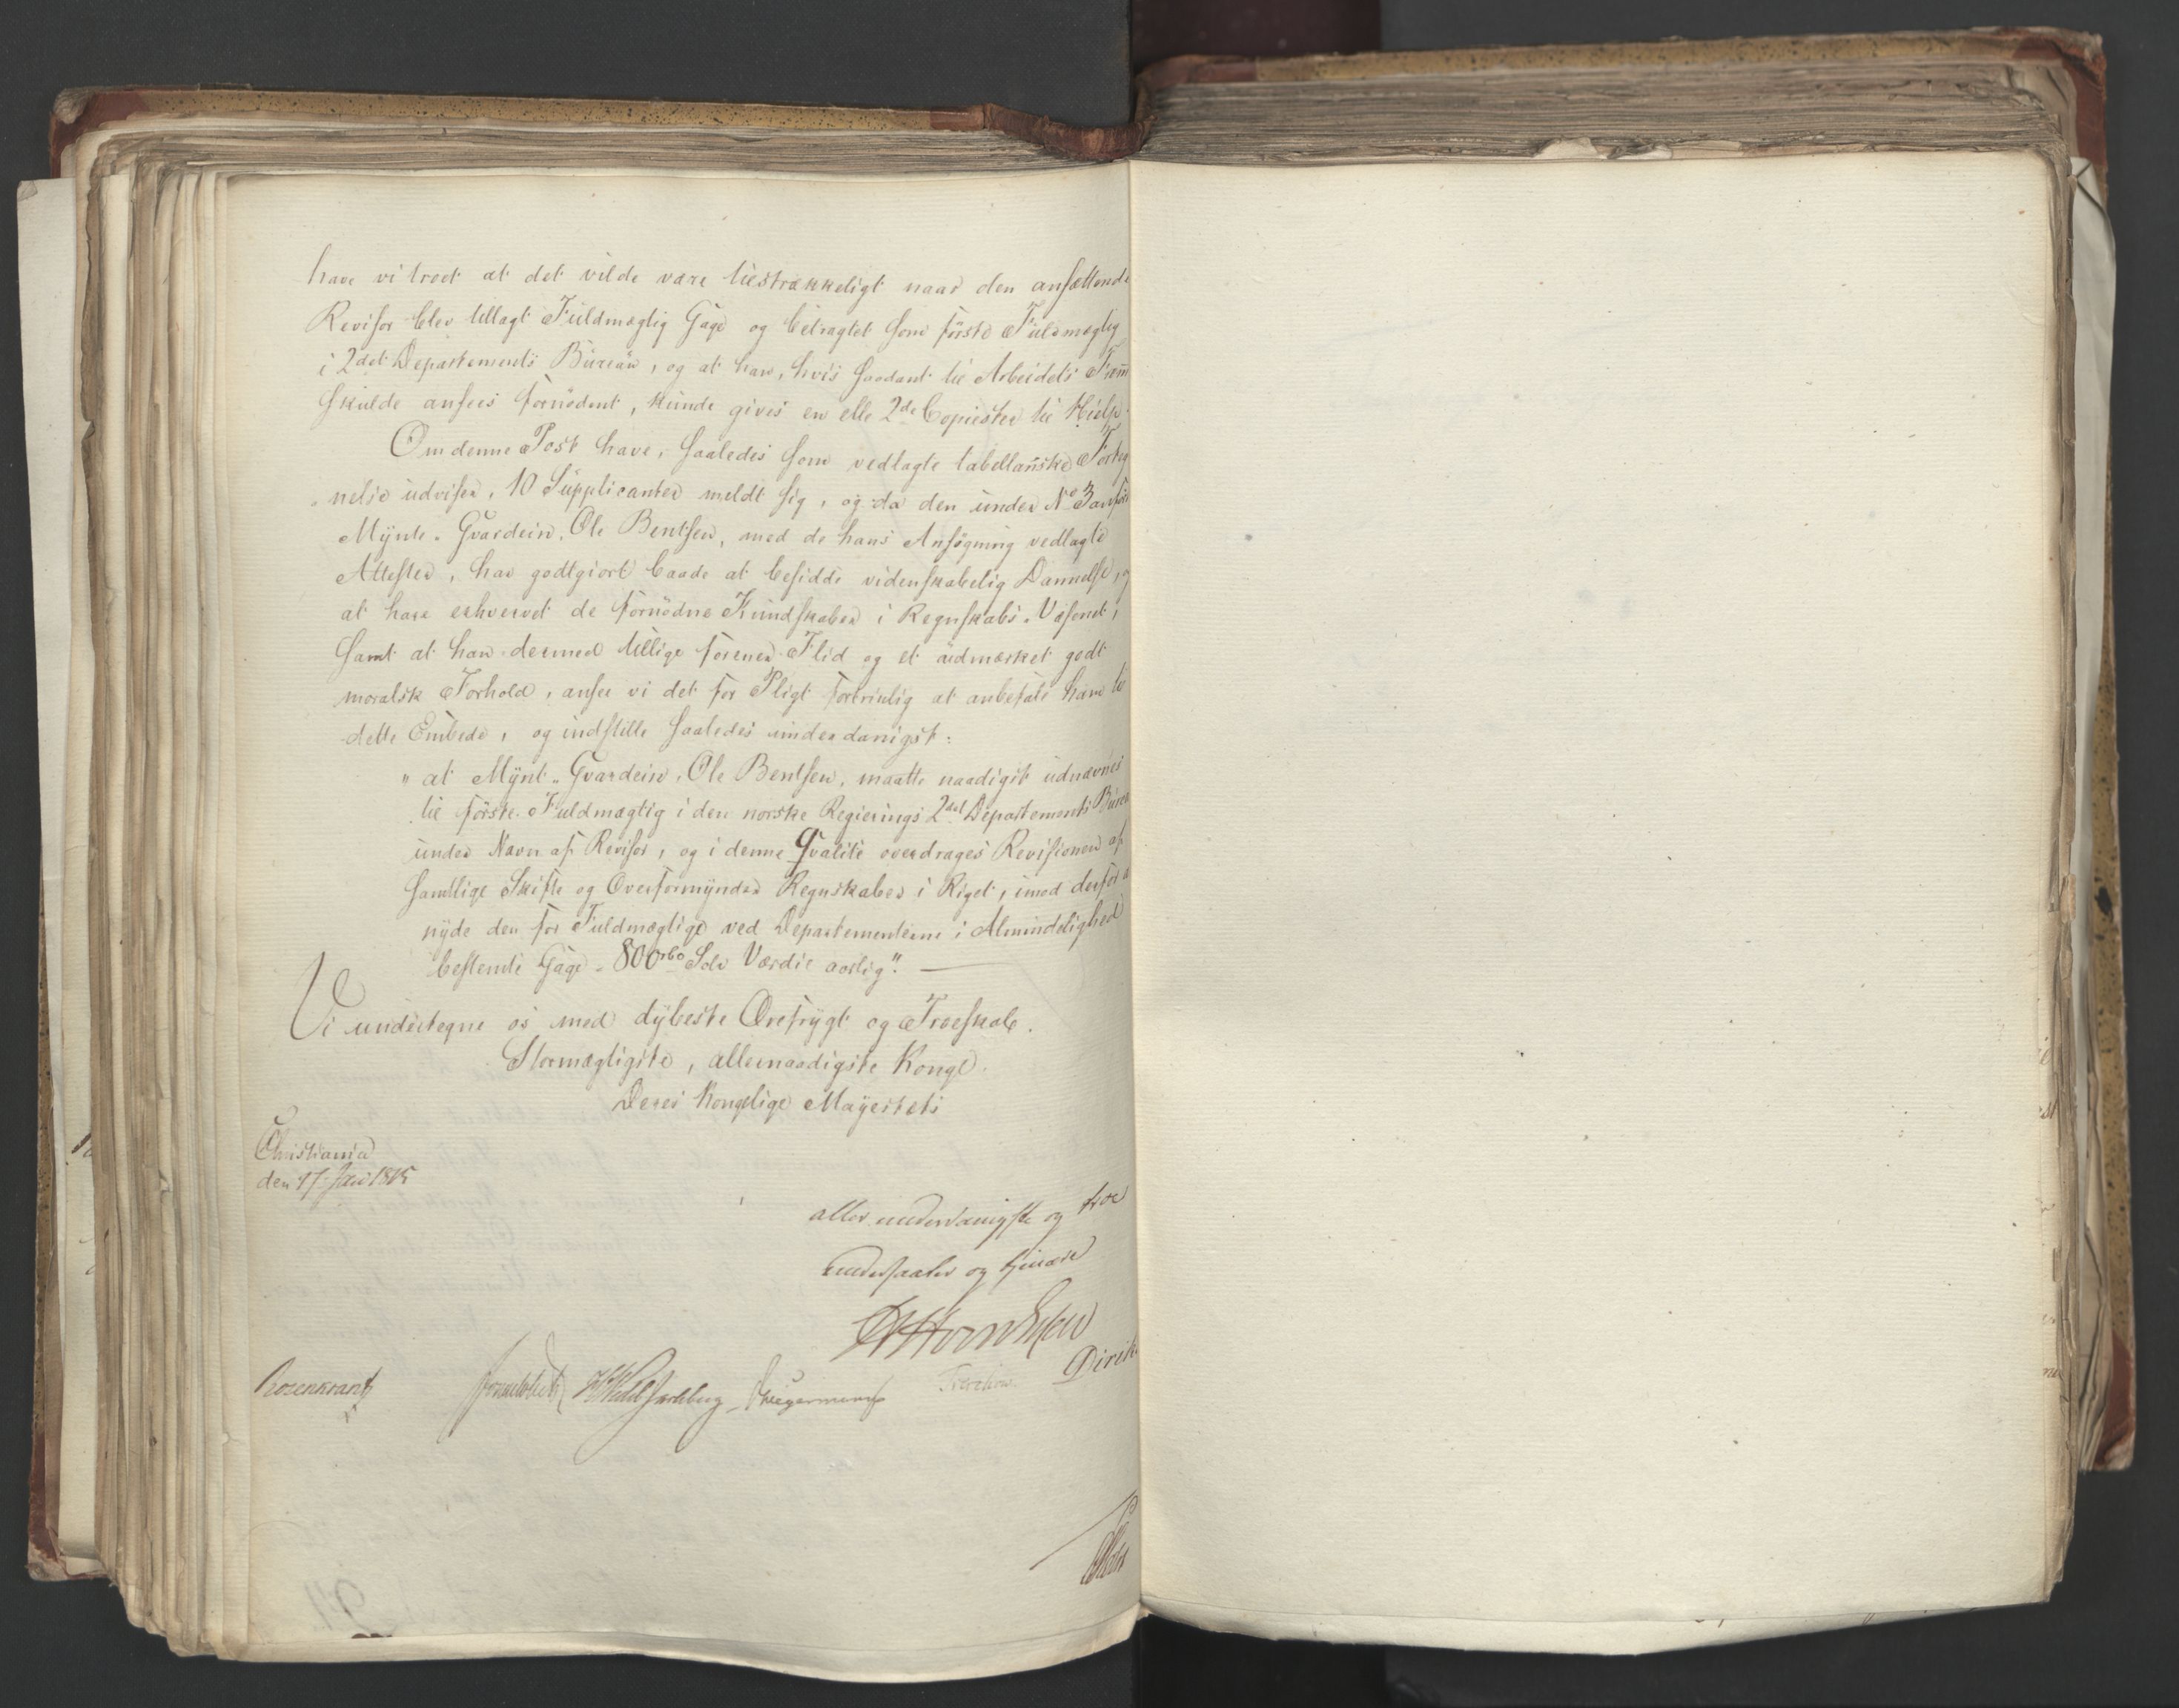 have vi troet at det vilde være tilstrækkeligt naar den ansættende
Revisor blev tillagt Fuldmægtig Gage og betragtet som første Fuldmægtig
i 2det Departements Bureau, og at ham, hvis saadant til Arbeidets Fræm̄
skulde ansees fornødent, kunde gives en elle 2de Copiister til Hielp.
Om denne Post have, saaledes som vedlagte tabellariske Forteg
nelse udviser, 10 Supplicanter meldt sig, og da den under No 3 anførte
Mynt-Gvardein, Ole Bentsen, med de hans Ansøgning vedlagte
Attester, har godtgiort baade at besidde videnskabelig Dannelse, og
at have erhvervet de fornødne Kundskaber i Regnskabs-Væsenet,
samt at han dermed tillige forener Flid og et udmærket godt
moralsk Forhold, ansee vi det for Pligt fortrinlig at anbefale ham til
dette Embede, og indstille saaledes underdanigst:
"at Mynt-Gvardein, Ole Bentsen, maatte naadigst udnævnes
til første Fuldmægtig i den norske Regierings 2det Departements Bureau
under Navn af Revisor, og i denne Qvalité overdrages Revisionen af
samtlige Skifte og Overformynder Regnskaber i Riget, imod derfor at
nyde den for Fuldmægtige ved Departementerne i Almindelighed
bestemte Gage - 800 rbd Sølv Værdie aarlig".
Vi undertegne os med dybeste Ærefrygt og Troeskab.
Stormægtigste, allernaadigste Konge.
Deres Kongelige Mayestæts
Christiania
den 17 Jan 1815
aller underdanigste og troe
undersaatter og tjenere
Rosenkrantz
Sommerhielm
HWedel Jarlsberg
Krigsrmsen
Treschow
Dirik